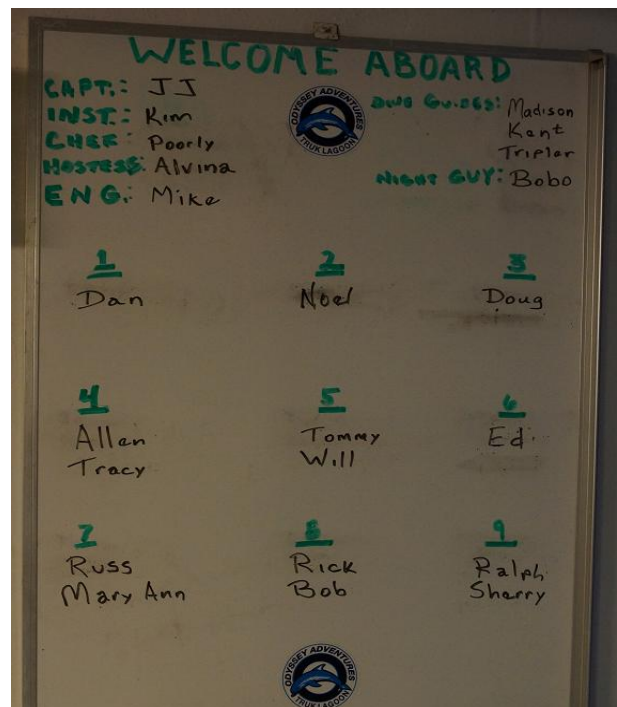 WELCOME ABOARD
CAPT.: JJ
INST.: Kim
CHEF: Poorly
HOSTESS: Alvina
ENG.: Mike
ODYSSEY ADVENTURES
TRUK LAGOON
DIVE GUIDES: Madison
Kent
Tripler
NIGHT GUY: Bobo
1 2 3
Dan Noel Doug
4 5 6
Allen Tommy Ed
Tracy Will
7 8 9
Russ Rick Ralph
Mary Ann Bob Sherry
ODYSSEY ADVENTURES
TRUK LAGOON